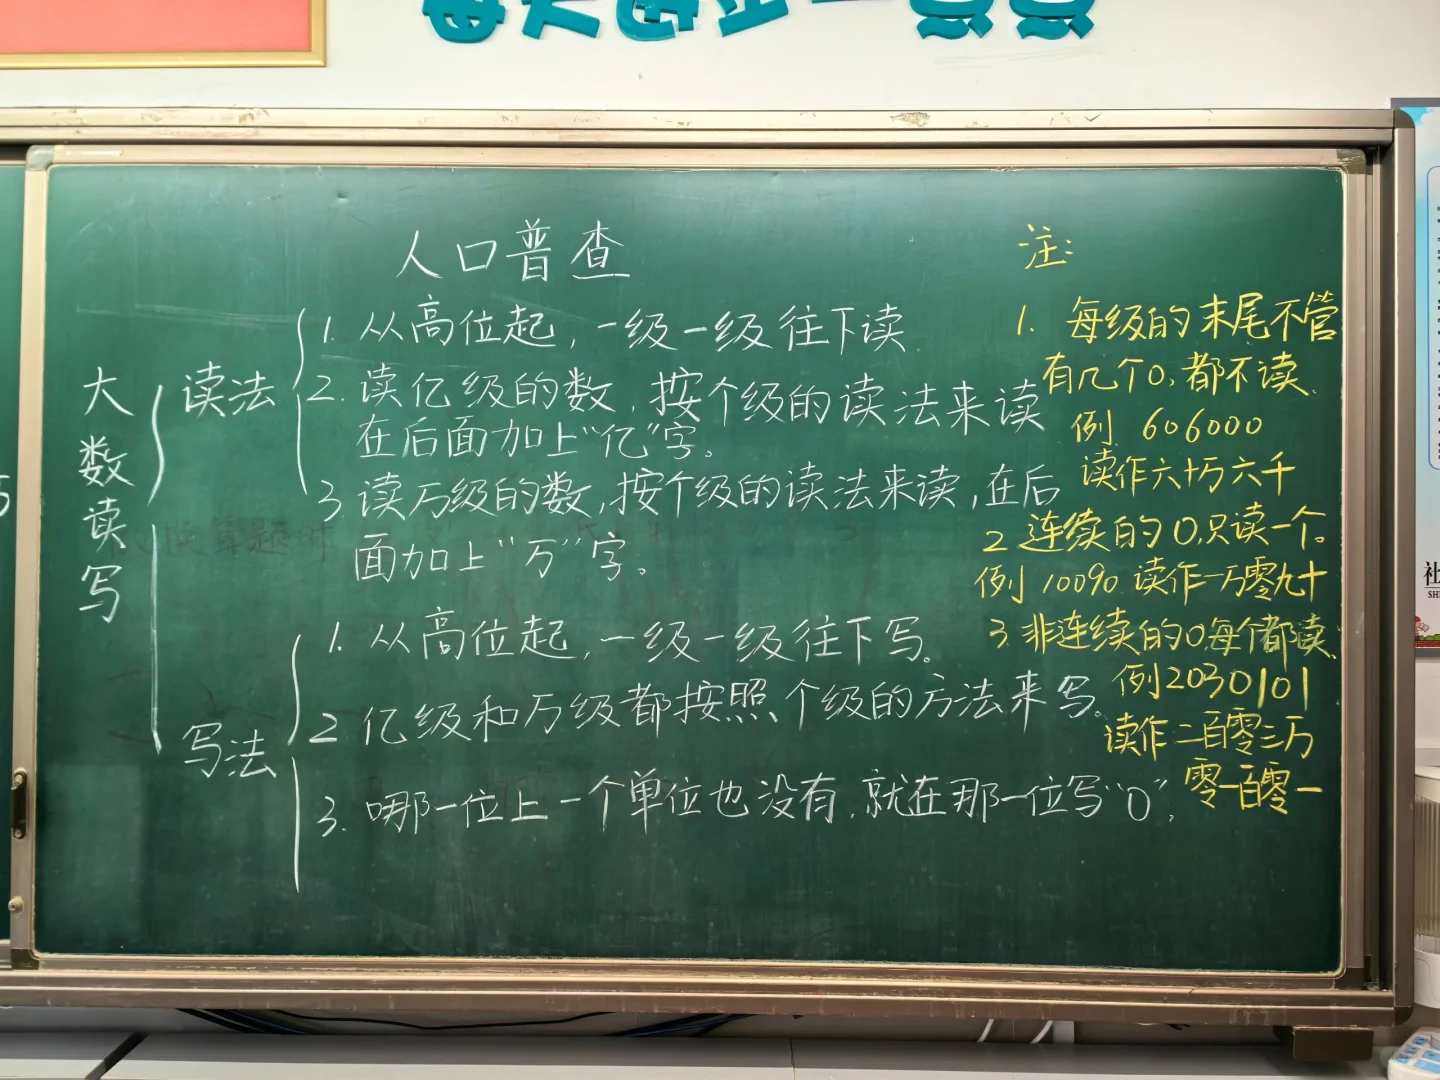 人口普查
大数读写
读法
1. 从高位起，一级一级往下读
2. 读亿级的数，按个级的读法来读
在后面加上“亿”字。
3 读万级的数，按个级的读法来读，在后
面加上“万”字。
写法
1. 从高位起，一级一级往下写。
2 亿级和万级都按照个级的方法来写。
3. 哪一位上一个单位也没有，就在那一位写“0”，
注：
1. 每级的末尾不管
有几个0，都不读、
例 606000
读作六十万六千
2 连续的0，只读一个。
例 10090 读作一万零九十
3 非连续的0，每个都读、
例2030101
读作二百零三万
零一百零一